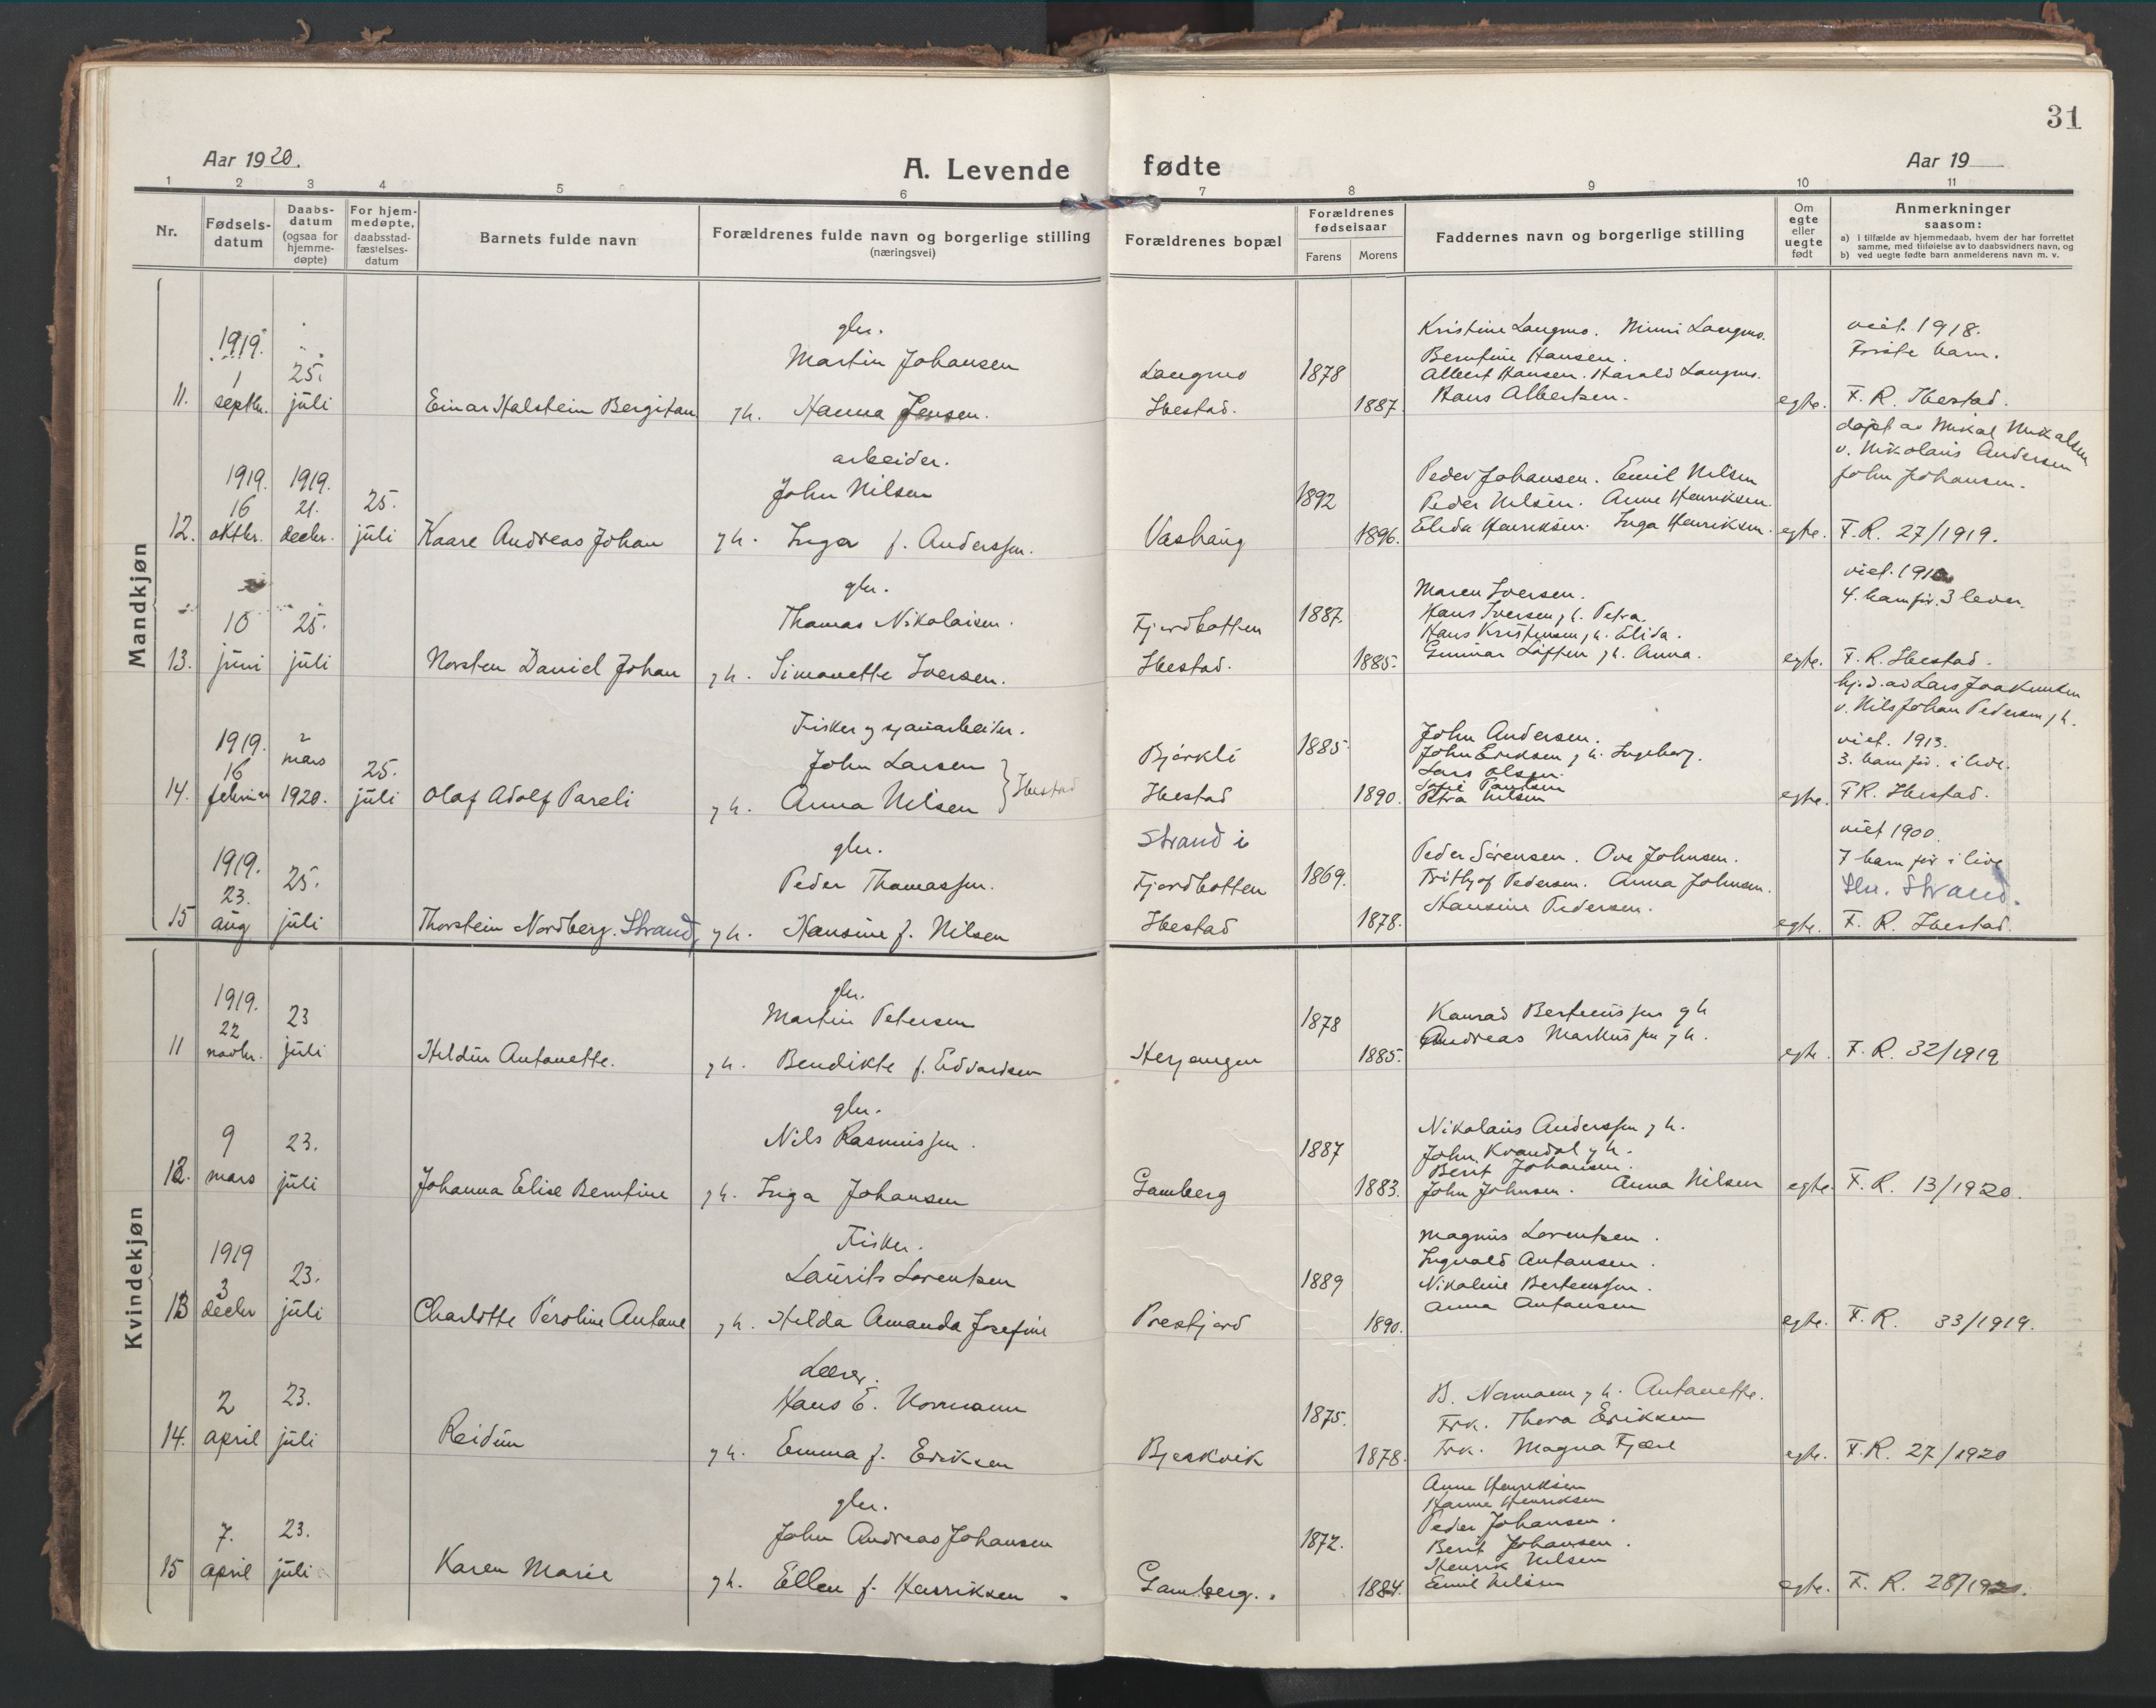 31
Aar 1920.
A. Levende fødte
Aar 19
1 2 3 4 5 6 7 8 9 10 11
Nr.
Fødsels-
datum
Daabs-
datum
(ogsaa for
hjemme-
døpte)
For hjem-
medøpte,
daabsstad-
fæstelses-
datum
Barnets fulde navn
Forældrenes fulde navn og borgerlige stilling
(næringsvei)
Forældrenes bopæl
Forældrenes
fødselsaar
Farens Morens
Faddernes navn og borgerlige stilling
Om
egte
eller
uegte
født
Anmerkninger
saasom:
a) I tilfælde av hjemmedaab, hvem der har forrettet
samme, med tilføielse av to daabsvidners navn, og
b) ved uegte fødte barn anmelderens navn m. v.
Mandkjøn
11.
1919.
1
septbr.
25.
juli
Einar Halstein Bergiton
gbr.
Martin Johansen
g h. Hanna Jensen.
Langmo
Ibestad.
1878
1887.
Kristine Langmo. Minni Langmo.
Berntine Hansen.
Albert Hansen. Harald Langmo.
Hans Albertsen.
egte.
viet 1918.
Første barn.
F. R. Ibestad.
12.
1919.
16
oktbr.
1919.
21.
decbr.
25.
juli
Kaare Andreas Johan
arbeider.
John Nilsen
g h. Inga f. Anderssen.
Vashaug
1892
1896.
Peder Johansen. Emil Nilsen
Peder Nilsen. Anne Henriksen.
Elida Henriksen. Inga Henriksen.
egte.
døpt av Mikal Mikalsen
v. Nikolaus Andersen
John Johansen.
F. R. 27/1919.
13.
10
juni
25.
juli
Norsten Daniel Johan
gbr.
Thomas Nikolaisen.
g h. Simonette Iversen.
Fjordbotten
Ibestad.
1887.
1885.
Maren Iversen.
Hans Iversen g h. Petra.
Hans Kristensen g h. Elida.
Gunnar Løften g h. Anna.
egte.
viet. 191
4. barn før. 3 lever.
F. R. Ibestad.
14.
1919.
16
februar
2
mars
1920.
25.
juli
Olaf Adolf Pareli
Fisker og sjauarbeider.
John Larsen
g h. Anna Nilsen
} Ibestad
Bjørkli
Ibestad
1885
1890.
John Andersen.
John Eriksen g h. Ingeborg.
Lars Olsen.
Sofie Paulsen
Petra Nilsen
egte.
hj. d. av Lars Joakimsen
v. Nils Johan Pedersen g h.
viet. 1913.
3. barn før. i live.
F R. Ibestad.
15
1919.
23.
aug
25.
juli
Thorstein Nordberg. Strand,
gbr.
Peder Thomassen.
g h. Hansine f. Nilsen
Strand i
Fjordbotten
Ibestad
1869.
1878.
Peder Sørensen. Ove Johnsen.
Frithjof Pedersen. Anna Johnsen.
Hansine Pedersen.
egte.
viet 1900.
7 barn før i live
Strand.
F. R. Ibestad.
Kvindekjøn
11
1919.
22
novbr.
23
juli
Heldur Antonette.
gbr.
Martin Petersen
g h. Bendikte f. Edvardsen
Herjangen
1878
1885.
Konrad Berteussen g h
Andreas Markussen g h.
egte.
F. R. 32/1919
12.
9
mars
23.
juli
Johanna Elise Berntine
gbr.
Nils Rasmussen.
g h. Inga Johansen
Gamberg
1887
1883.
Nikolaus Anderssen g h.
John Kvandal g h.
Berit Johansen.
John Johnsen. Anna Nilsen
egte.
F. R. 13/1920.
13
1919
3
decbr
23.
juli
Charlotte Peroline Antone
Fisker.
Laurits Lorentsen
g h. Hilda Amanda Josefine
Presfjord
1889
1890.
Magnus Lorentsen.
Ingvald Antonsen.
Nikoline Berteussen.
Anna Antonsen
egte.
F. R. 33/1919.
14.
2
april
23.
juli
Reidun
Lærer.
Hans E. Normann
g h. Emma f. Eriksen
Bjerkvik
1875.
1878.
B. Normann g h. Antonette.
Frk. Thora Eriksen
Frk. Magna Fjære
egte.
F. R. 27/1920
15
7.
april
23.
juli
Karen Marie
gbr.
John Andreas Johansen
g h. Ellen f. Henriksen
Gamberg.
1872.
1884.
Anne Henriksen
Hanne Henriksen
Peder Johansen.
Berit Johansen.
Henrik Nilsen
Emil Nilsen
egte.
F. R. 28/1920.